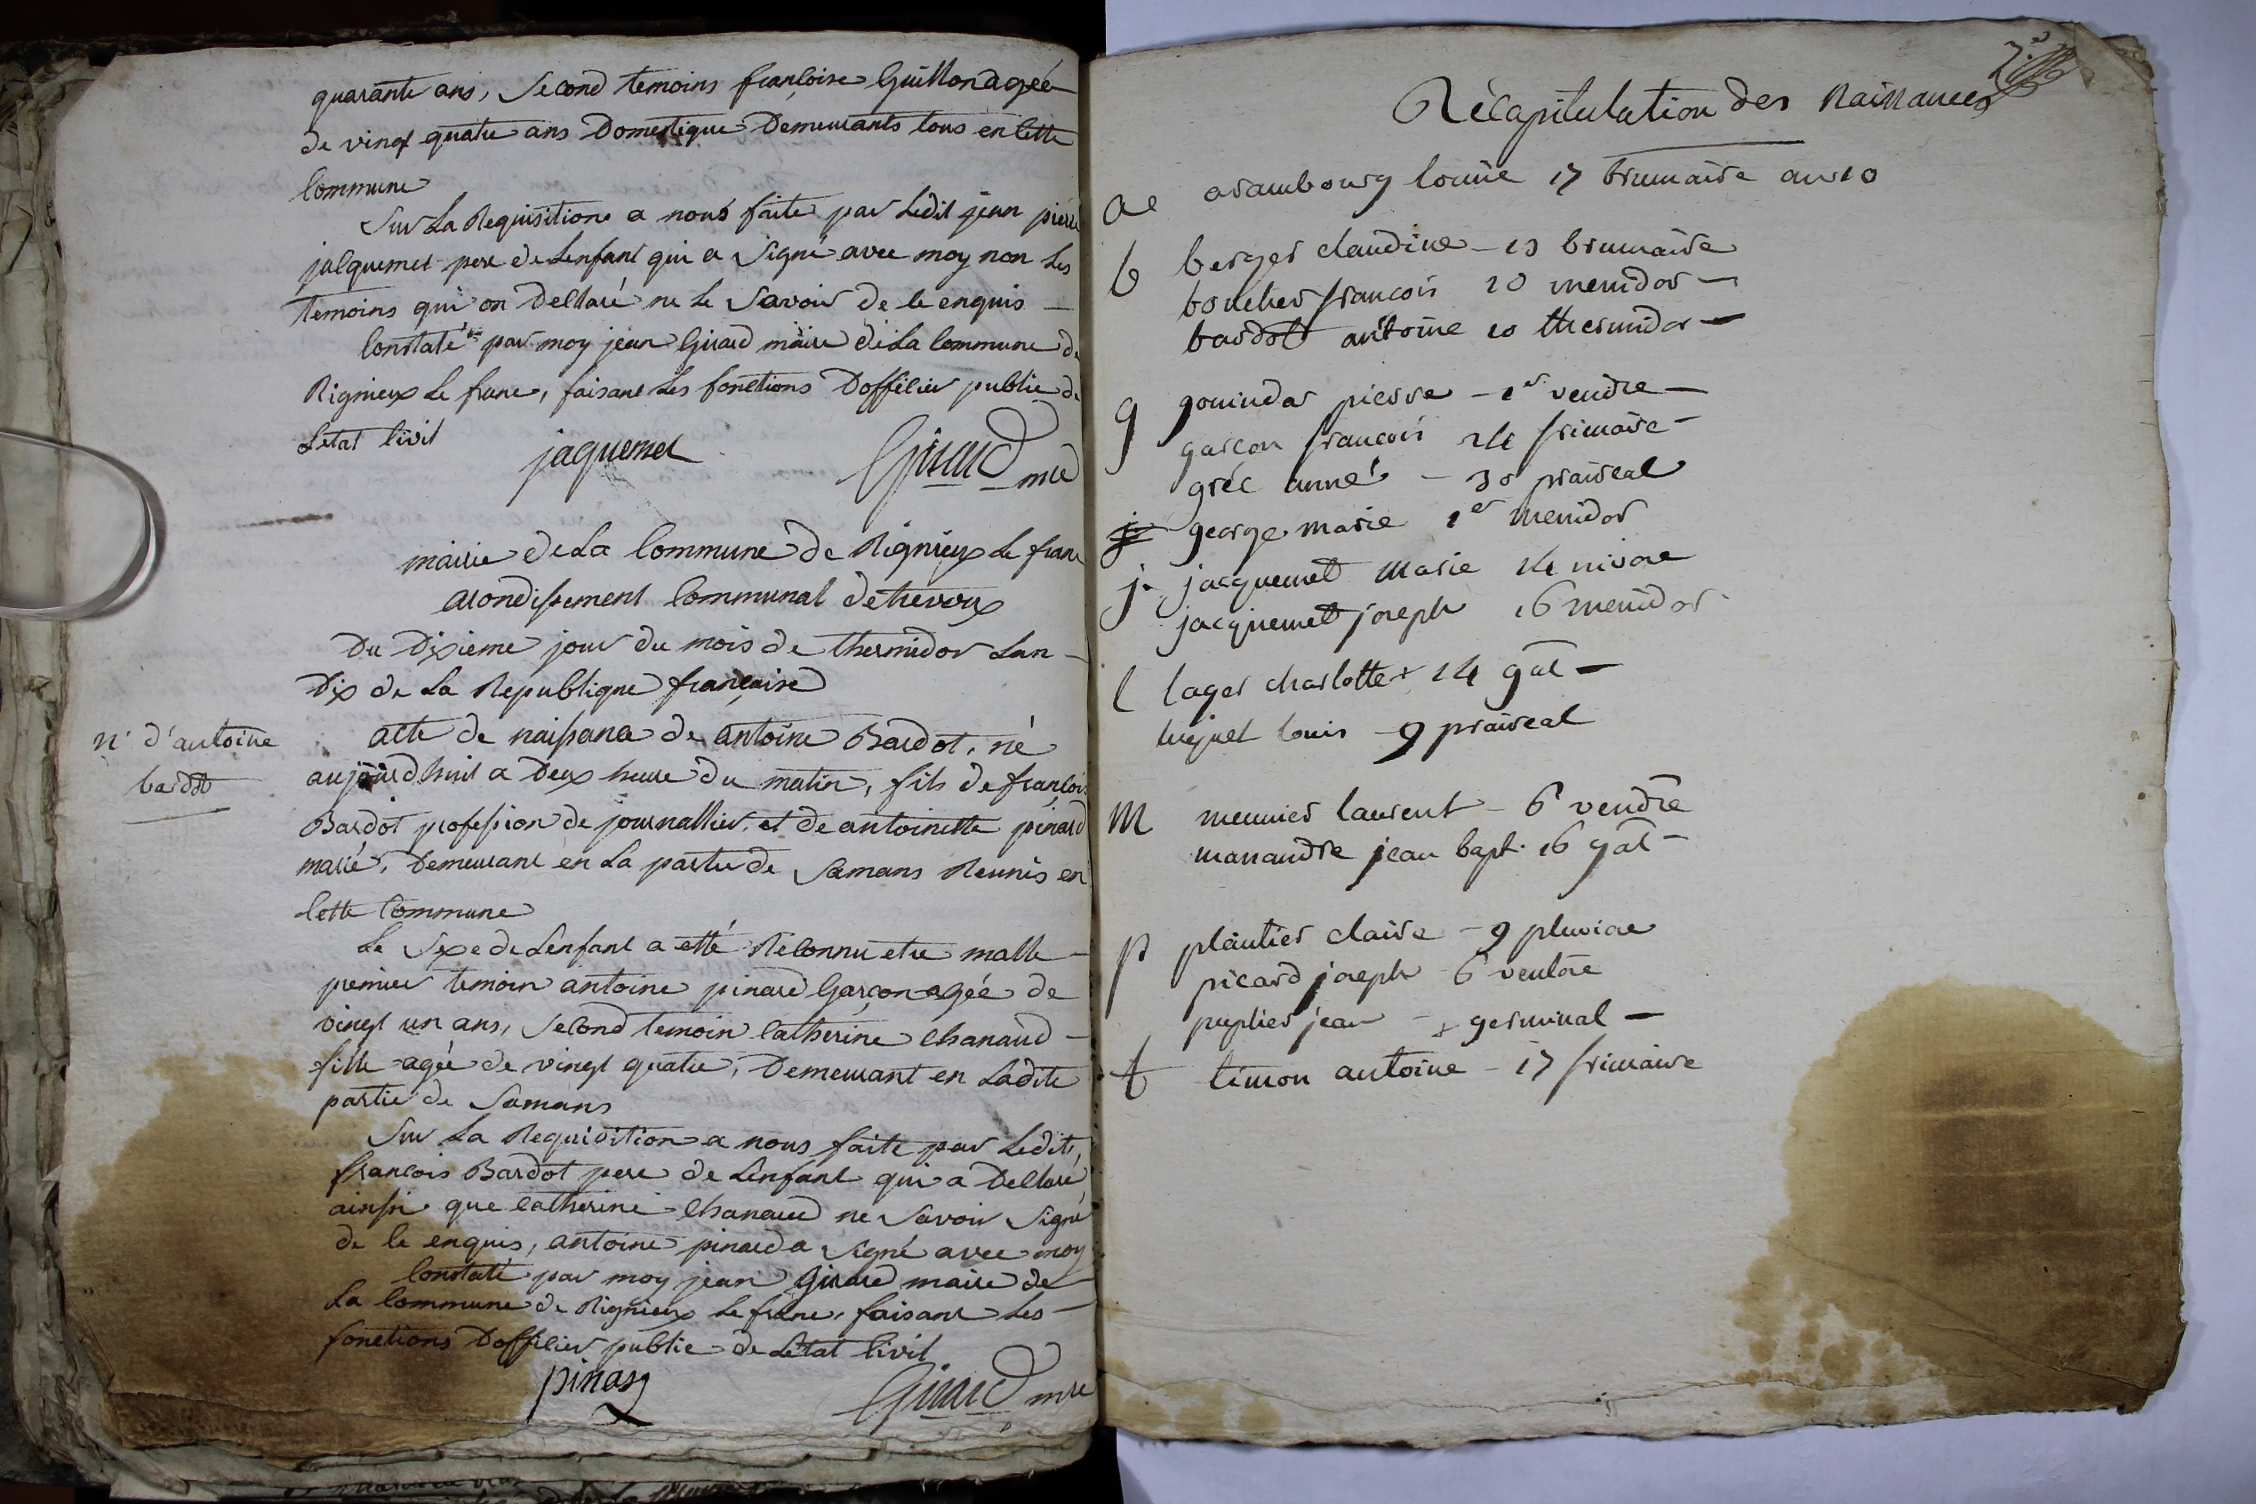 quarante ans, Second temoins françoise Guillon agéé
de vingt quatre ans Domestique Demeurants tous en Cette
Commune
Sur La Requisition a nous faite par Ledit jean pierre
jalquemet pere de Lenfant qui a Signé avec moy non Les
temoins qui on Dellaré ne le Savoir de le enquis —
Constaté par moy jean Girard maire de La Commune de
Rignieux Le franc, faisant Les fonctions Dofficier public de
Létat Civil
jaquemet Girard mre
mairie de La Commune de Rignieux Le franc
arondissement Communal de trevoux
Du Dixieme jour du mois de thermidor Lan —
Dix de La Republique françaire
n. d'antoine
bardot
acte de naissance de antoine Bardot, né
aujourdhuit a Deux heure du matin, fils de françois
Bardot profession de journallier, et de antoinette pinard
marié, Demeurant en La partie de Samans Reunis en
Cette Commune
Le Sexe de Lenfant a etté Reconnu etre malle —
premier temoin antoine pinard Garçon agéé de
vingt un ans, Second temoin Catherine Chanaud —
fille agée de vingt quatre, Demeurant en Ladite
partie de Samans
Sur La Requisition a nous faite par Ledit,
françois Bardot pere de Lenfant qui a Dellaré
ainssi que Catherine Chanaud ne Savoir Signé
de le enquis, antoine pinard a Signé avec moy
Constaté par moy jean Girard maire de
La Commune de Rignieux Le franc, faisant Les —
fonctions Dofficier public de Létat Civil
pinard Girard mre
Récapitulation des Naissances
a arambourg louise 17 brumaire an 10
b berger claudine — 13 brumaire
boucher françois 20 messidor —
bardot antoine 10 thermidor —
g gouindar pierre — 1er vendre —
garçon françois 24 frimaire —
gréc anné — 30 prairéal
george marie 1er messidor
j. jacquemet Marie 14 nivose
jacquemet joseph 16 messidor
l lager charlotte 14 gal —
luquet louis — 9 prairéal
M meunier laurent — 6 vendre
manandre jean bapt. 16 gal —
p plantier claire — 9 pluviose
picard joseph 6 ventose
puplier jean — germinal —
t timon antoine — 17 frimaire